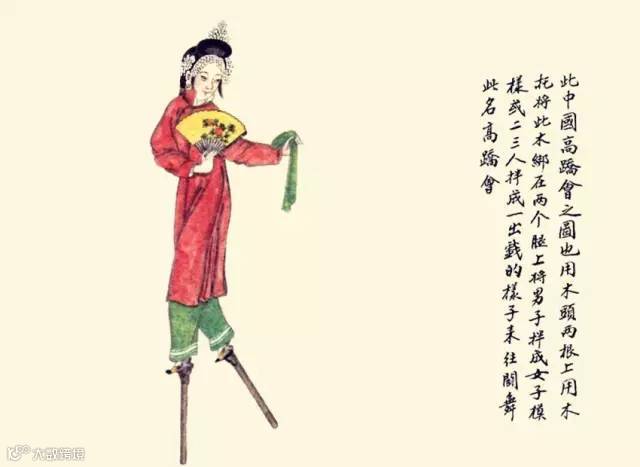 此中國高蹻會之圖也用木頭兩根上用木
托将此木綁在两个腿上将男子拌成女子模
樣或二三人拌成一出戲的樣子来往鬪舞
此名高蹻會
大数跨境